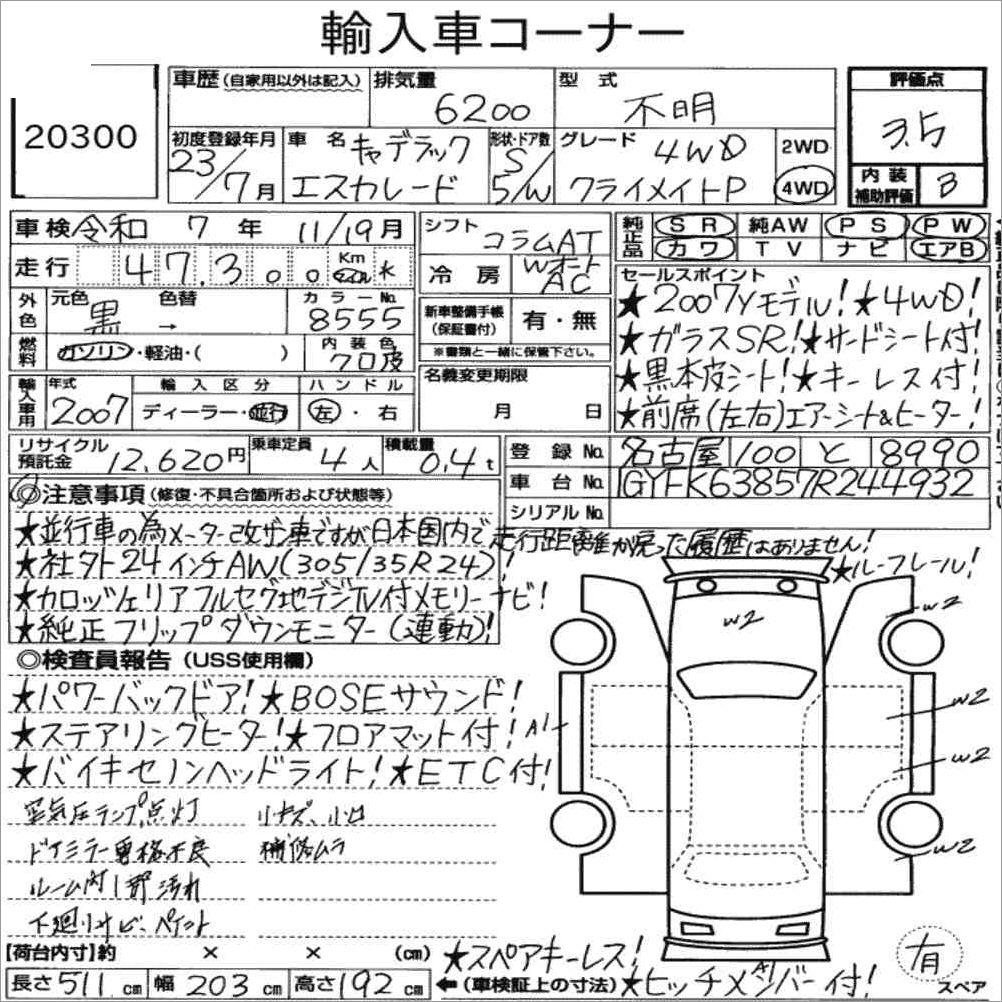 輸入車コーナー
20300
車歴 (自家用以外は記入) 排気量 6200 型式 不明
評価点 3.5
初度登録年月 23/7月 車名 キャデラック エスカレード
形状・ドア数 S 5/W グレード 4WD クライメイトP
2WD
4WD
内装補助評価 B
車検 令和 7年 11/19月
シフト コラムAT
純正品 SR 純AW PS PW
カワ TV ナビ エアB
走行 47,300 Km マイル
冷房 Wオート AC
外色 元色 黒 色替 → カラーNo. 8555
新車整備手帳 (保証書付) 有・無
※書類と一緒に保管下さい。
燃料 ガソリン・軽油・( ) 内装色 クロ皮
名義変更期限 月 日
セールスポイント
★2007Yモデル!★4WD!
★ガラスSR!★サードシート付!
★黒本皮シート!★キーレス付!
★前席(左右)エアーシート&ヒーター!
輸入車用 年式 2007 輸入区分 ディーラー・並行 ハンドル 左・右
リサイクル預託金 12,620円 乗車定員 4人 積載量 0.4t
登録No. 名古屋 100 と 8990
車台No. 1GYFK63857R244932
シリアルNo.
◎注意事項 (修復・不具合箇所および状態等)
★並行車の為メーター改ざん車ですが日本国内で走行距離が戻った履歴はありません!
★社外24インチAW(305/35R24)!
★ルーフレール!
★カロッツェリアフルセグ地デジTV付メモリーナビ!
★純正フリップダウンモニター(連動)!
◎検査員報告 (USS使用欄)
★パワーバックドア!★BOSEサウンド!
★ステアリングヒーター!★フロアマット付!
★バイキセノンヘッドライト!★ETC付!
空気圧ランプ点灯 小キズ、小凹
ドアミラー 格不良 補修ムラ
ルーム内1部汚れ
下廻りサビ、ペイント
W2
W2
A1
W2
W2
W2
【荷台内寸】約 × × (cm)
★スペアキーレス!
長さ511cm 幅203cm 高さ192cm
←(車検証上の寸法)
★ヒッチメンバー付!
有
スペア